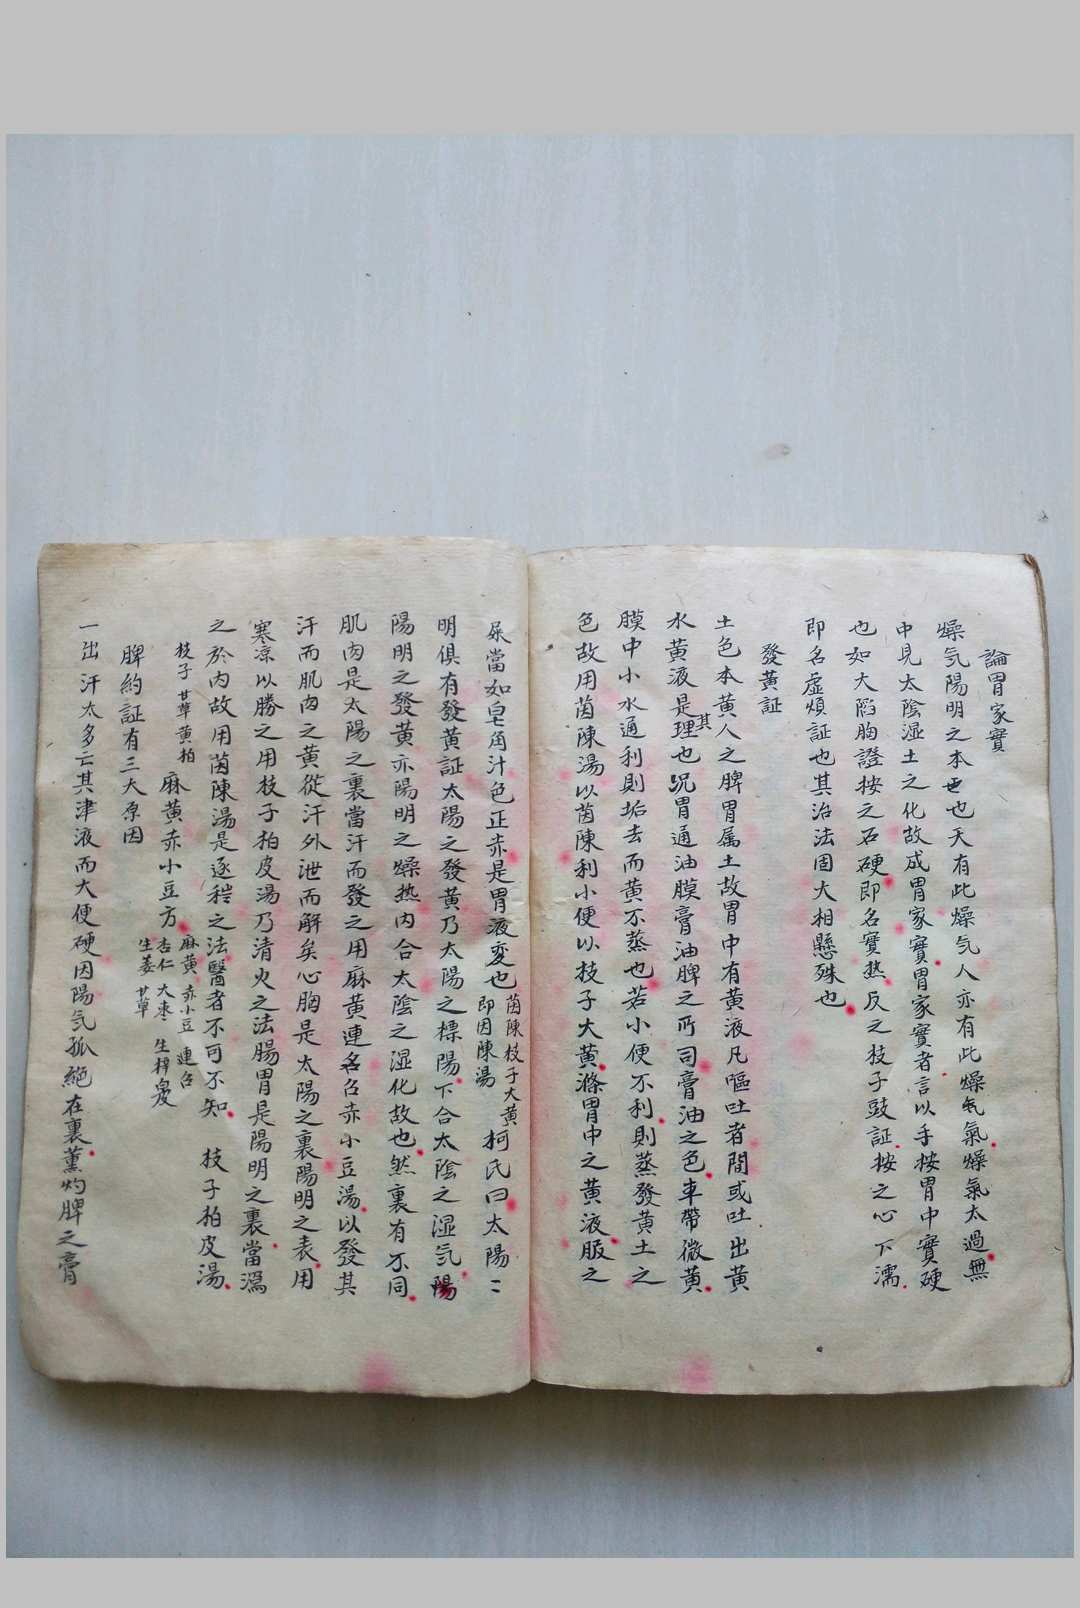 論胃家實
燥気陽明之本也天有此燥気人亦有此燥氣燥氣太過無
中見太陰湿土之化故成胃家實胃家實者言以手按胃中實硬
也如大陷胸證按之石硬即名實热反之枝子豉証按之心下濡
即名虛煩証也其治法固大相懸殊也
發黄証
土色本黄人之脾胃属土故胃中有黄液凡嘔吐者間或吐出黄
水黄液是其理也况胃通油膜膏油脾之所司膏油之色車帶微黄
膜中小水通利則垢去而黄不蒸也若小便不利則蒸發黄土之
色故用茵陳湯以茵陳利小便以枝子大黄滌胃中之黄液服之
尿當如皂角汁色正赤是胃液变也茵陳枝子大黄即因陳湯柯氏曰太陽二
明俱有發黄証太陽之發黄乃太陽之標陽下合太陰之湿気陽
陽明之發黄亦陽明之燥热内合太陰之湿化故也然裏有不同
肌肉是太陽之裏當汗而發之用麻黄連召赤小豆湯以發其
汗而肌肉之黄從汗外泄而解矣心胸是太陽之裏陽明之表用
寒凉以勝之用枝子柏皮湯乃清火之法腸胃是陽明之裏當瀉
之於内故用茵陳湯是逐秽之法醫者不可不知 枝子柏皮湯
枝子 甘草 黄柏 麻黄赤小豆方 麻黄 赤小豆 連召 杏仁 大枣 生梓白皮 生姜 甘草
脾約証有三大原因
一出汗太多亡其津液而大便硬因陽気孤絕在裏薰灼脾之膏